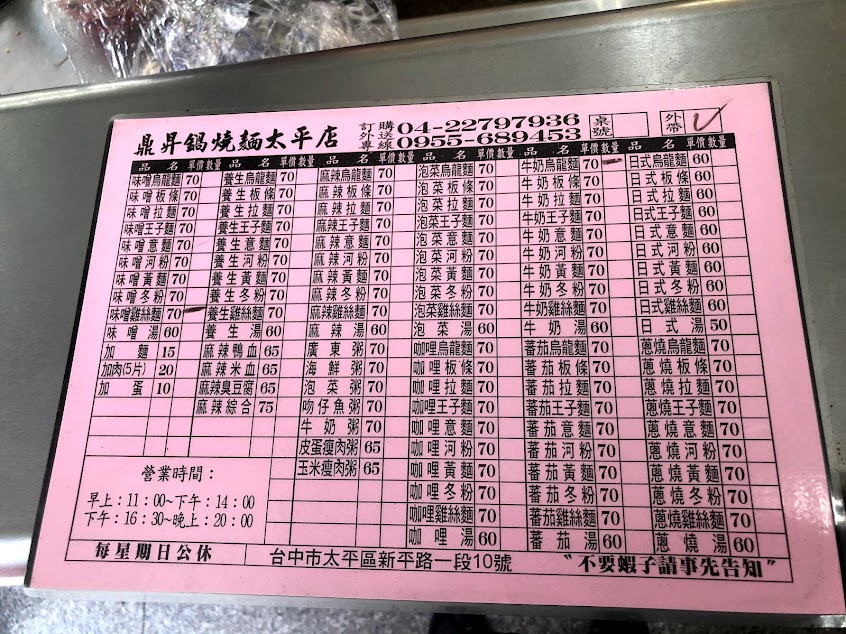 鼎昇鍋燒麵太平店 訂購外送專線 04-22797936 0955-689453 桌號 外帶 V
品名 單價 數量 品名 單價 數量 品名 單價 數量 品名 單價 數量 品名 單價 數量 品名 單價 數量
味噌烏龍麵 70 養生烏龍麵 70 麻辣烏龍麵 70 泡菜烏龍麵 70 牛奶烏龍麵 70 日式烏龍麵 60
味噌板條 70 養生板條 70 麻辣板條 70 泡菜板條 70 牛奶板條 70 日式板條 60
味噌拉麵 70 養生拉麵 70 麻辣拉麵 70 泡菜拉麵 70 牛奶拉麵 70 日式拉麵 60
味噌王子麵 70 養生王子麵 70 麻辣王子麵 70 泡菜王子麵 70 牛奶王子麵 70 日式王子麵 60
味噌意麵 70 養生意麵 70 麻辣意麵 70 泡菜意麵 70 牛奶意麵 70 日式意麵 60
味噌河粉 70 養生河粉 70 麻辣河粉 70 泡菜河粉 70 牛奶河粉 70 日式河粉 60
味噌黃麵 70 養生黃麵 70 麻辣黃麵 70 泡菜黃麵 70 牛奶黃麵 70 日式黃麵 60
味噌冬粉 70 養生冬粉 70 麻辣冬粉 70 泡菜冬粉 70 牛奶冬粉 70 日式冬粉 60
味噌雞絲麵 70 養生雞絲麵 70 麻辣雞絲麵 70 泡菜雞絲麵 70 牛奶雞絲麵 70 日式雞絲麵 60
味噌湯 60 養生湯 60 麻辣湯 60 泡菜湯 60 牛奶湯 60 日式湯 50
加麵 15 麻辣鴨血 65 廣東粥 70 咖哩烏龍麵 70 蕃茄烏龍麵 70 蔥燒烏龍麵 70
加肉(5片) 20 麻辣米血 65 海鮮粥 70 咖哩板條 70 蕃茄板條 70 蔥燒板條 70
加蛋 10 麻辣臭豆腐 65 泡菜粥 70 咖哩拉麵 70 蕃茄拉麵 70 蔥燒拉麵 70
麻辣綜合 75 吻仔魚粥 70 咖哩王子麵 70 蕃茄王子麵 70 蔥燒王子麵 70
牛奶粥 70 咖哩意麵 70 蕃茄意麵 70 蔥燒意麵 70
皮蛋瘦肉粥 65 咖哩河粉 70 蕃茄河粉 70 蔥燒河粉 70
玉米瘦肉粥 65 咖哩黃麵 70 蕃茄黃麵 70 蔥燒黃麵 70
咖哩冬粉 70 蕃茄冬粉 70 蔥燒冬粉 70
咖哩雞絲麵 70 蕃茄雞絲麵 70 蔥燒雞絲麵 70
咖哩湯 60 蕃茄湯 60 蔥燒湯 60
營業時間：
早上：11：00~下午：14：00
下午：16：30~晚上：20：00
每星期日公休 台中市太平區新平路一段10號 〝不要蝦子請事先告知〞